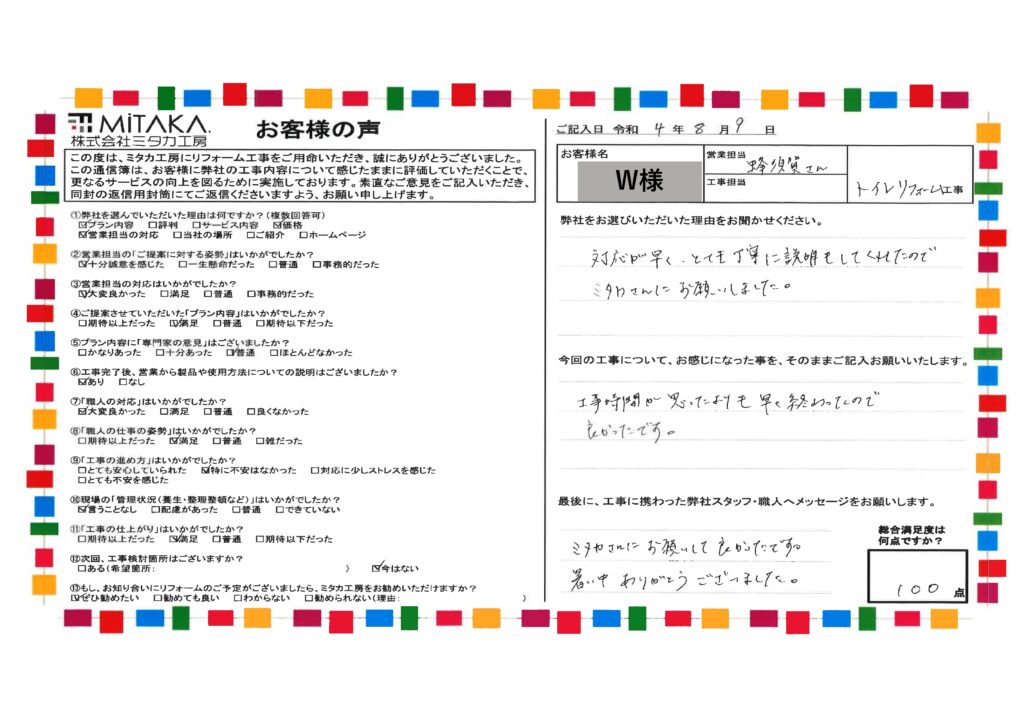 MiTAKA.
株式会社ミタカ工房
お客様の声
この度は、ミタカ工房にリフォーム工事をご用命いただき、誠にありがとうございました。
この通信簿は、お客様に弊社の工事内容について感じたままに評価していただくことで、
更なるサービスの向上を図るために実施しております。素直なご意見をご記入いただき、
同封の返信用封筒にてご返信くださいますよう、お願い申し上げます。
①弊社を選んでいただいた理由は何ですか?(複数回答可)
☑プラン内容 □評判 □サービス内容 ☑価格
☑営業担当の対応 □当社の場所 □ご紹介 □ホームページ
②営業担当の「ご提案に対する姿勢」はいかがでしたか?
☑十分誠意を感じた □一生懸命だった □普通 □事務的だった
③営業担当の対応はいかがでしたか?
☑大変良かった □満足 □普通 □事務的だった
④ご提案させていただいた「プラン内容」はいかがでしたか?
□期待以上だった ☑満足 □普通 □期待以下だった
⑤プラン内容に「専門家の意見」はございましたか?
□かなりあった □十分あった ☑普通 □ほとんどなかった
⑥工事完了後、営業から製品や使用方法についての説明はございましたか?
☑あり □なし
⑦「職人の対応」はいかがでしたか?
☑大変良かった □満足 □普通 □良くなかった
⑧「職人の仕事の姿勢」はいかがでしたか?
□期待以上だった ☑満足 □普通 □雑だった
⑨「工事の進め方」はいかがでしたか?
□とても安心していられた ☑特に不安はなかった □対応に少しストレスを感じた
□とても不安を感じた
⑩現場の「管理状況(養生・整理整頓など)」はいかがでしたか?
☑言うことなし □配慮があった □普通 □できていない
⑪「工事の仕上がり」はいかがでしたか?
□期待以上だった ☑満足 □普通 □期待以下だった
⑫次回、工事検討箇所はございますか?
□ある(希望箇所: ) ☑今はない
⑬もし、お知り合いにリフォームのご予定がございましたら、ミタカ工房をお勧めいただけますか?
☑ぜひ勧めたい □勧めても良い □わからない □勧められない(理由: )
ご記入日 令和 4 年 8 月 9 日
お客様名
W様
営業担当 蜂須賀さん
工事担当
トイレリフォーム工事
弊社をお選びいただいた理由をお聞かせください。
対応が早く、とても丁寧に説明もしてくれたので
ミタカさんにお願いしました。
今回の工事について、お感じになった事を、そのままご記入お願いいたします。
工事時間が思ったよりも早く終わったので
良かったです。
最後に、工事に携わった弊社スタッフ・職人へメッセージをお願いします。
ミタカさんにお願いして良かったです。
暑い中ありがとうございました。
総合満足度は
何点ですか?
100 点